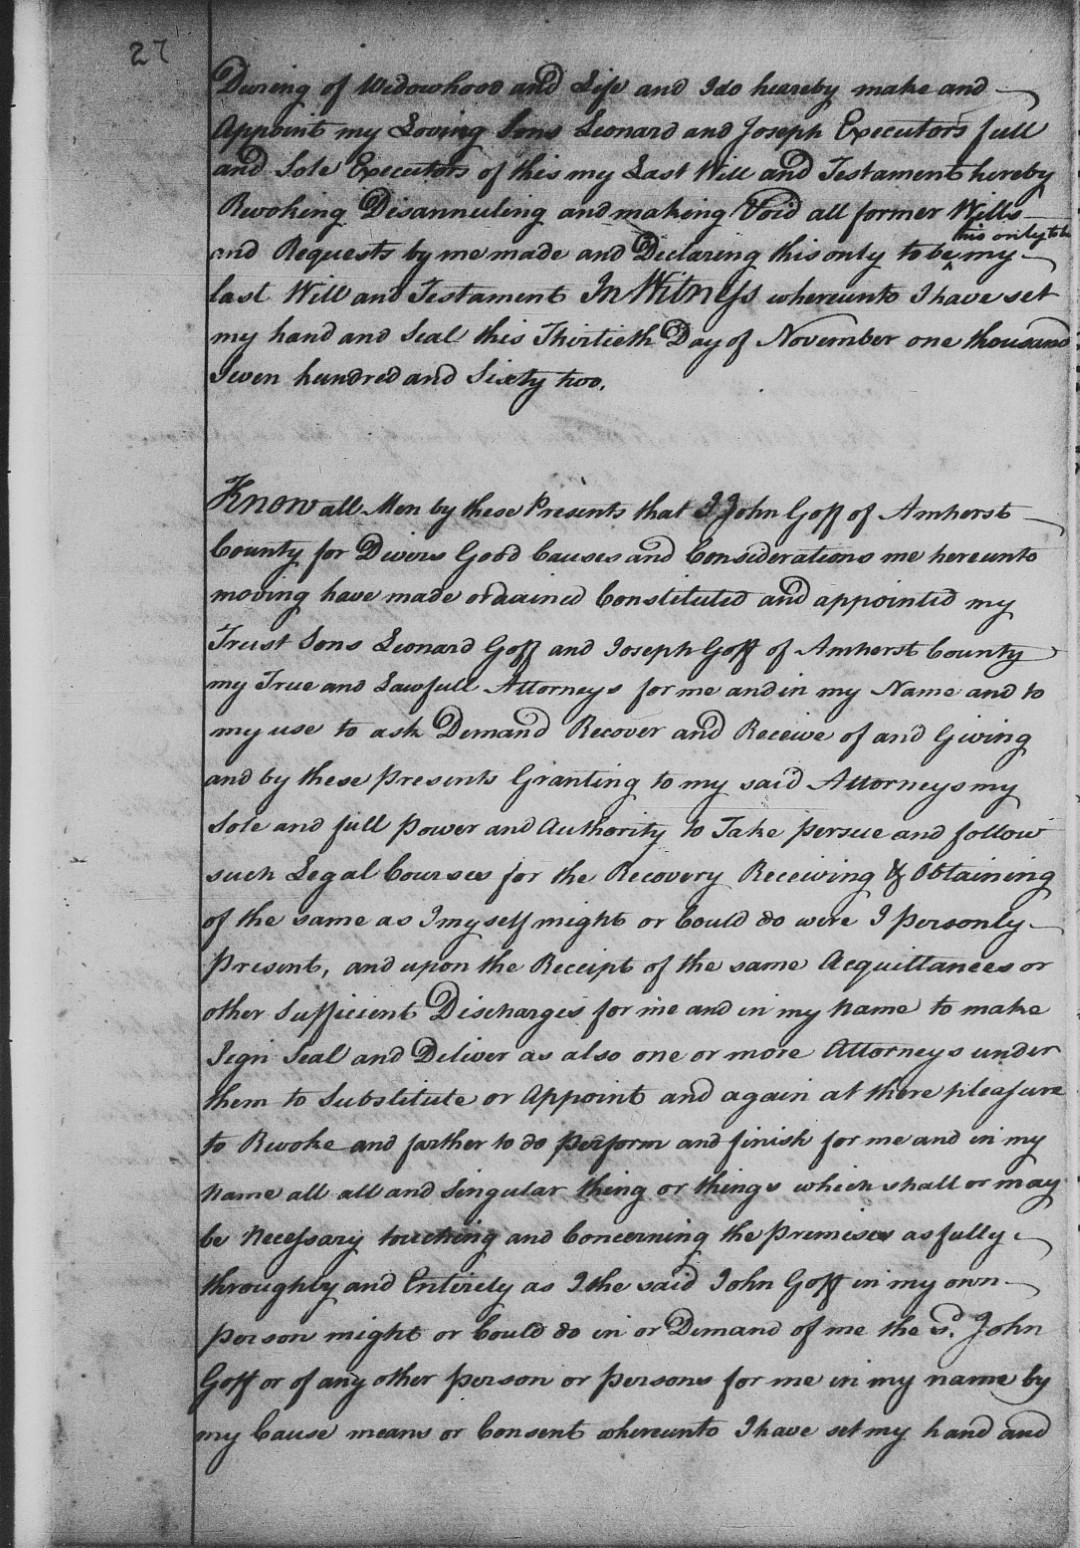 27
During of Widowhood and Life and I do heareby make and
Appoint my Loving Sons Leonard and Joseph Executors full
and Sole Executors of this my Last Will and Testament hereby
Revoking Disannuling and making Void all former Wills
this only to be
and Requests by me made and Declaring this only to be ‸ my
last Will and Testament In Witness whereunto I have set
my hand and Seal this Thirtieth Day of November one thousand
Seven hundred and Sixty two.
Know all Men by these Presents that I John Goff of Amherst
County for Divers Good Causes and Considerations me hereunto
moving have made ordained Constituted and appointed my
Trust Sons Leonard Goff and Joseph Goff of Amherst County
my True and Lawfull Attorneys for me and in my Name and to
my use to ask Demand Recover and Receive of and Giving
and by these presents Granting to my said Attorneys my
Sole and full power and Authority to Take persue and follow
such Legal Courses for the Recovery Receiving & Obtaining
of the same as I myself might or Could do were I personly
Present, and upon the Receipt of the same Acquittances or
other Sufficient Discharges for me and in my name to make
Sign Seal and Deliver as also one or more Attorneys under
them to Substitute or Appoint and again at there pleasure
to Revoke and farther to do perform and finish for me and in my
name all all and Singular thing or things which shall or may
be Necessary touching and Concerning the premises as fully
throughly and Entirely as I the said John Goff in my own
person might or Could do in or Demand of me the sd. John
Goff or of any other person or persons for me in my name by
my Cause means or Consent whereunto I have set my hand and